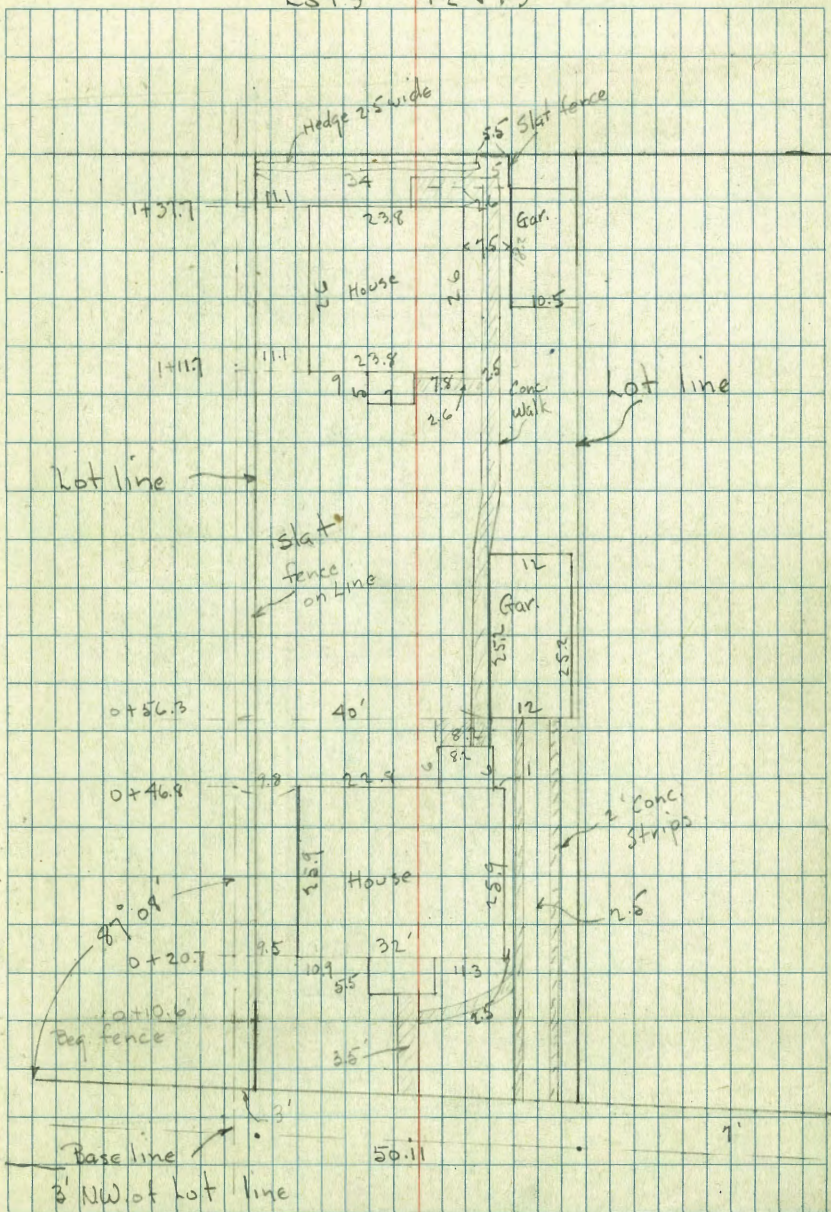 Hedge 2.5 wide
5.5
Slat fence
34
1+37.7
11.1
2.6
23.8
Gar.
7.5
18.2
26
House
26
10.5
1+11.7
11.1
23.8
2.5
9
5
7
7.8
2.6
Conc.
Walk
Lot line
Lot line
slat
fence
on Line
12
Gar.
25.2
25.2
0+56.3
40'
12
8.2
8.2
6
6
1
0+46.8
9.8
22.8
2' Conc.
Strips
25.9
House
25.9
2.5
87° 08'
0+20.7
9.5
32'
10.9
11.3
5.5
0+10.6
Beg fence
2.5
3.5'
3'
Base line
50.11
7'
3' NW. of Lot line